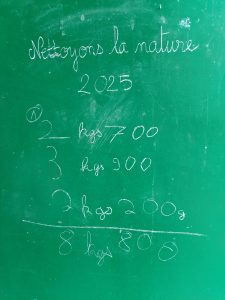 Nettoyons la nature
2025
2 kgs 700
3 kgs 900
2 kgs 200g
8 kgs 800